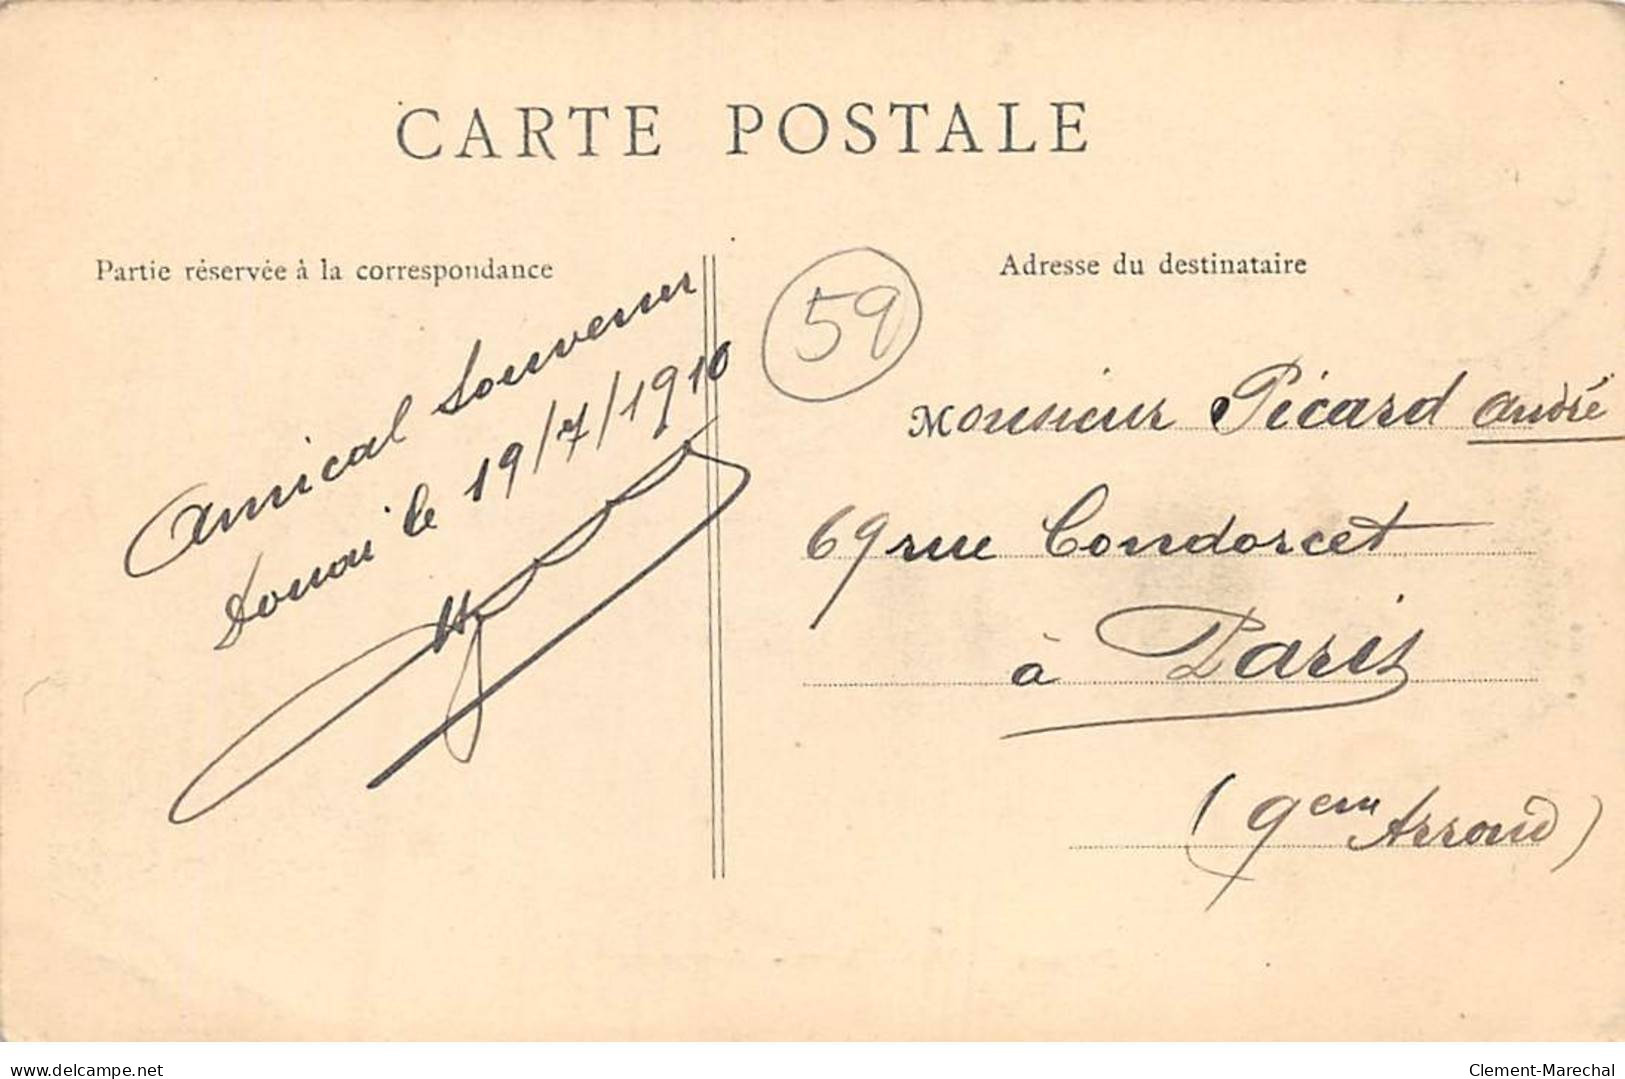 CARTE POSTALE
Partie réservée à la correspondance
Amical Souvenir
Douai le 19/7/1910
59
Adresse du destinataire
Monsieur Picard André
69 rue Condorcet
à Paris
(9em Arrond)
delcampe.net
Clement-Marechal